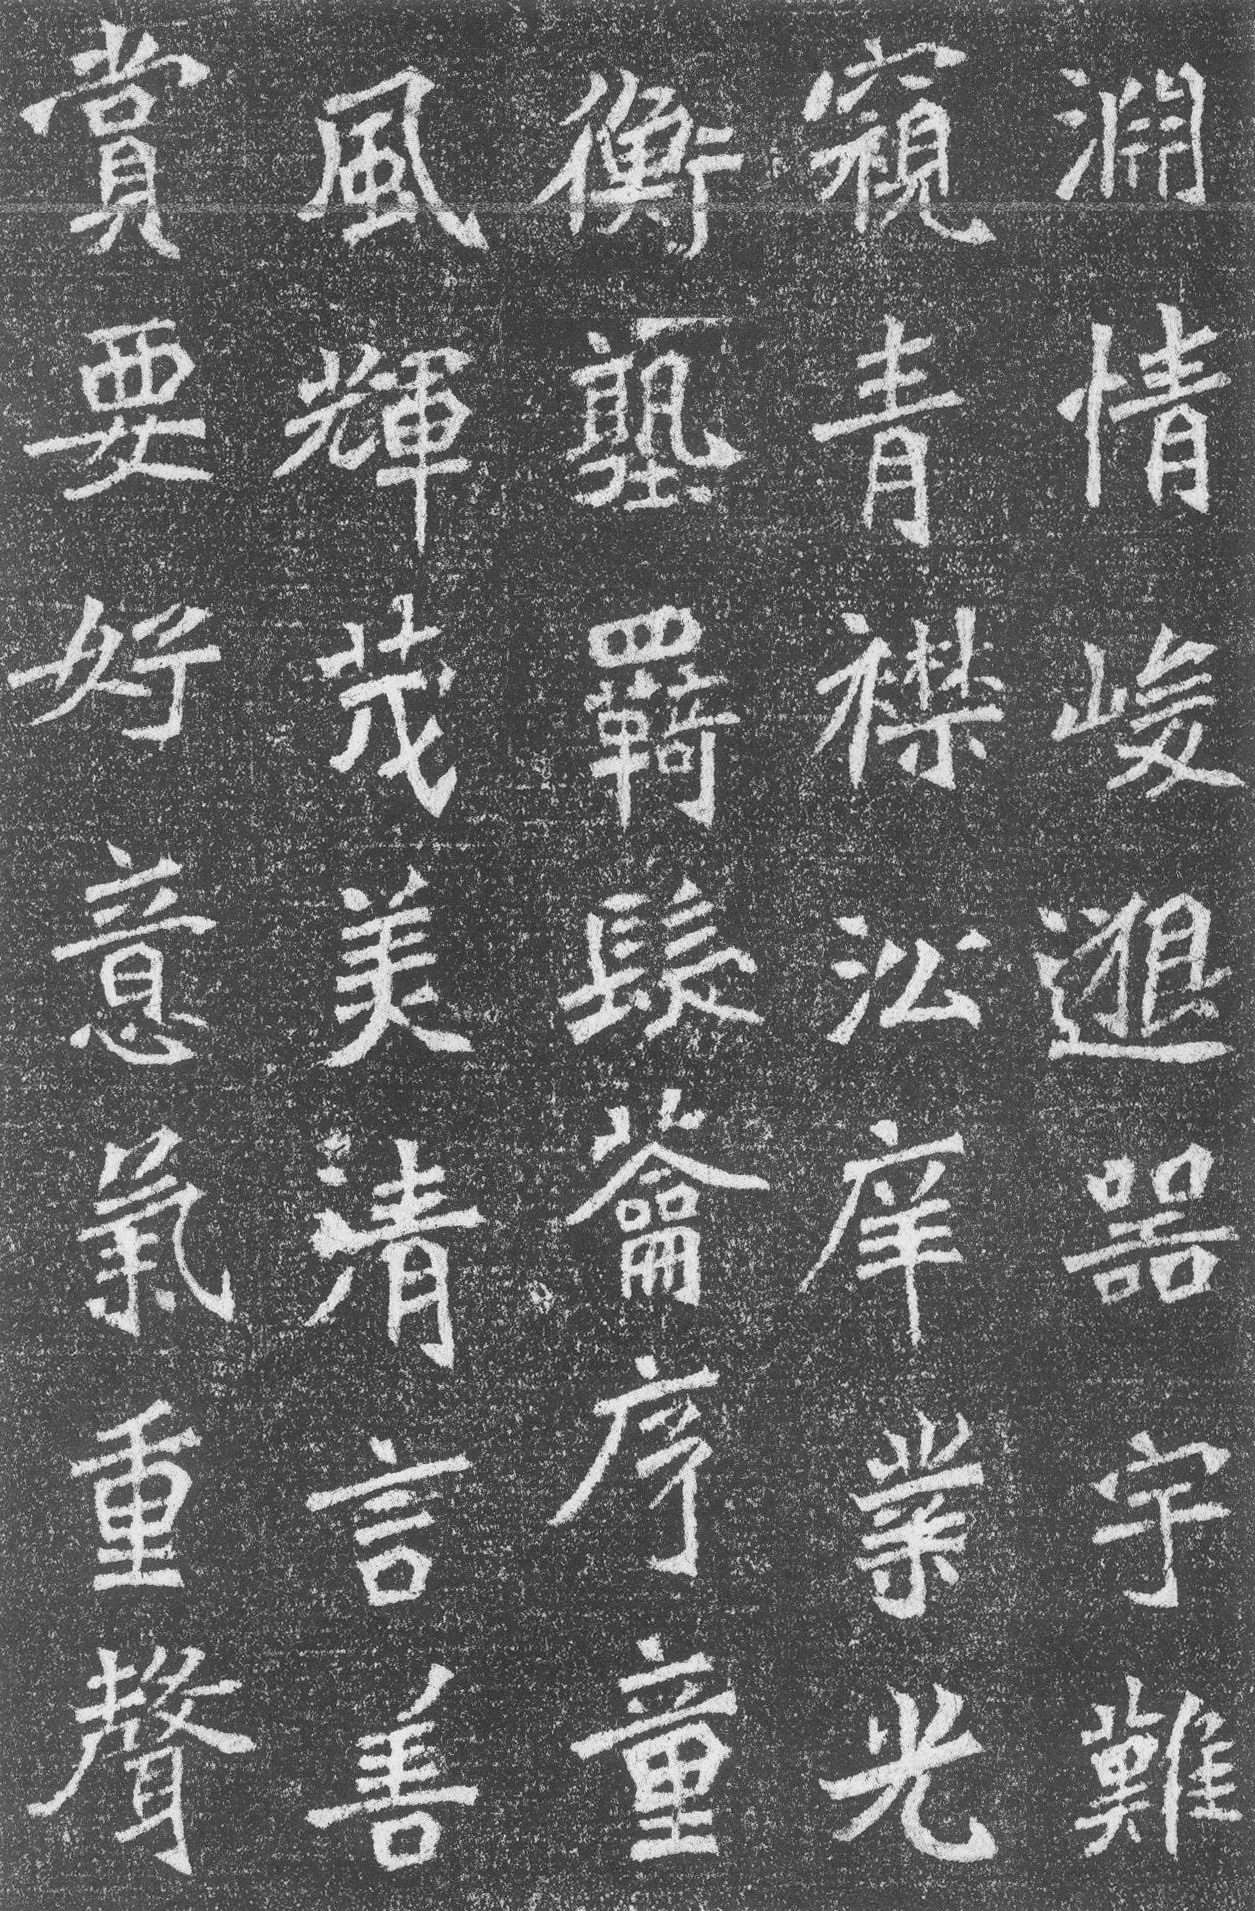 淵情峻邈器宇難
窺青襟㳂庠業光
衡塾羈髮蘥序童
風輝茂美清言善
賞要好意氣重聲